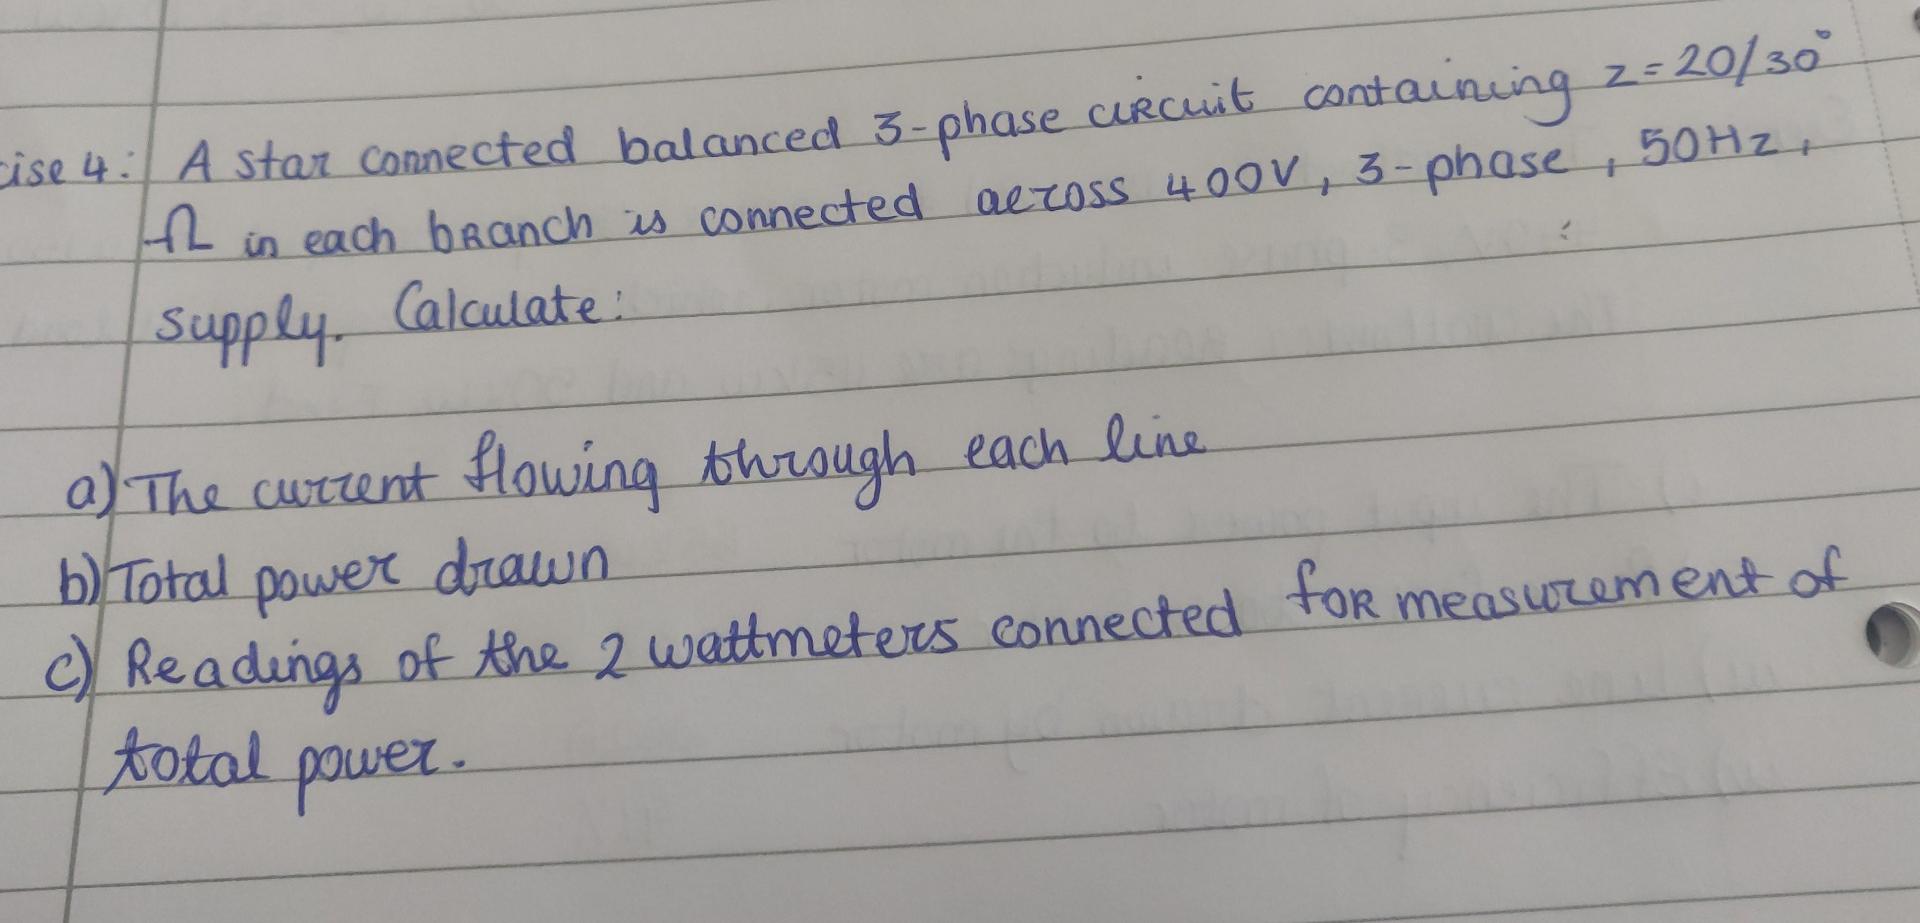 cise 4: A star connected balanced 3-phase circuit containing z=20/30°
Ω in each branch is connected across 400V, 3-phase, 50Hz,
supply. Calculate:
a) The current flowing through each line
b) Total power drawn
c) Readings of the 2 wattmeters connected for measurement of
total power.